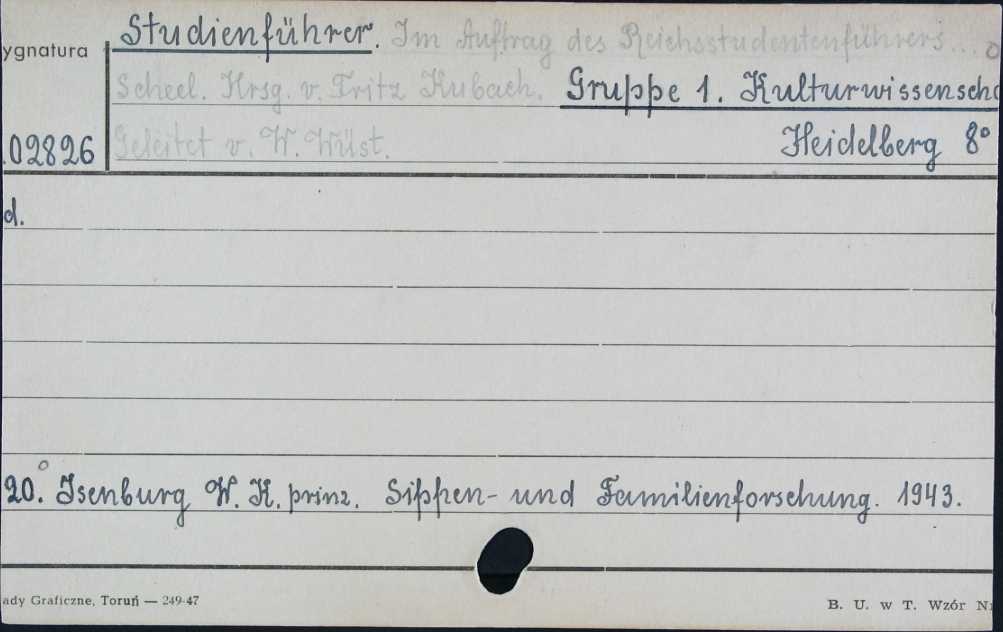 Studienführer. Im Auftrag des Reichsstudentenführers...
ygnatura
Scheel. Hrsg. v. Fritz Kubach. Gruppe 1. Kulturwissensch
.02826 Geleitet v. W. Wüst. Heidelberg 8°
d.
20. Isenburg W. K. prinz. Sippen- und Familienforschung. 1943.
ady Graficzne, Toruń — 249-47
B. U. w T. Wzór N